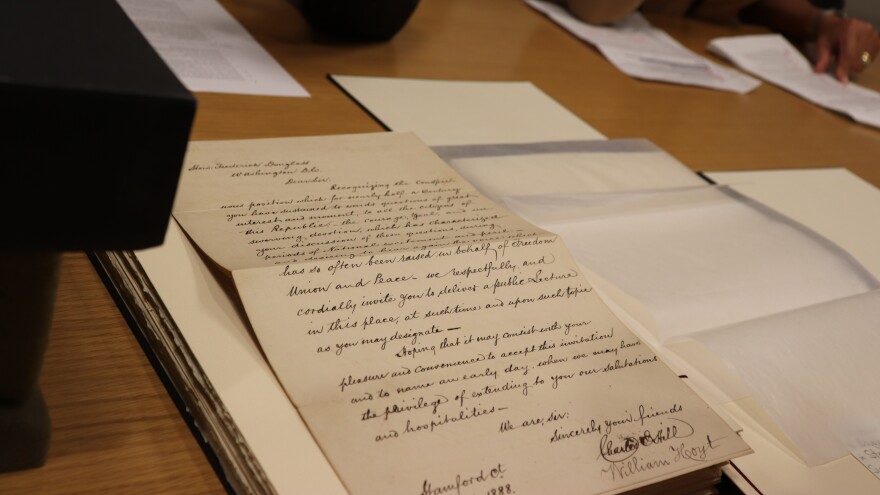 Hon. Frederick Douglass
Washington D.C.
Dear Sir
Recognizing the Conspic-
uous position which for nearly half a Century
you have sustained towards questions of great
interest and moment, to all the citizens of
this Republic — the Courage, Zeal, and un-
swerving, devotion, which has characterized
your discussion of them questions, during
periods of National excitement and peril —
and desiring to hear again the voice which
has so often been raised in behalf of Freedom
Union and Peace — we respectfully, and
cordially invite you to deliver a public Lecture
in this place, at such time and upon such topic
as you may designate —
Hoping that it may consist with your
pleasure and convenience to accept this invitation
and to name an early day, when we may have
the privilege of extending to you our salutations
and hospitalities —
We are, sir.
Sincerely your friends
Charles E. Hill
William Hoyt
Stamford Ct.
1888.